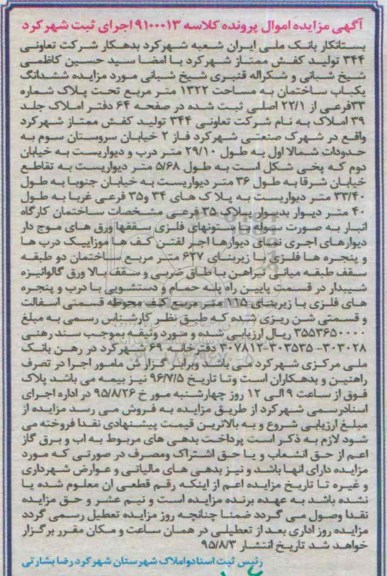 آگهی مزایده اموال پرونده کلاسه ۹۱۰۰۰۱۳ اجرای ثبت شهرکرد
بستانکار بانک ملی ایران شعبه شهرکرد بدهکار شرکت تعاونی
۳۴۴ تولید کفش ممتاز شهرکرد با امضا سید حسین کاظمی
شیخ شبانی و شکراله قنبری شیخ شبانی مورد مزایده ششدانگ
یکباب ساختمان به مساحت ۱۳۲۲ متر مربع تحت پلاک شماره
۳۳فرعی از ۲۲/۱ اصلی ثبت شده در صفحه ۶۴ دفتر املاک جلد
۳۹ املاک به نام شرکت تعاونی ۳۴۴ تولید کفش ممتاز شهرکرد
واقع در شهرک صنعتی شهرکرد فاز ۲ خیابان سروستان سوم به
حدودات شمالا اول به طول ۲۹/۱۰ متر درب و دیواریست به خیابان
دوم که پخی شکل است به طول ۵/۶۸ دیواریست به تقاطع
خیابان شرقا به طول ۳۶ متر دیواریست به خیابان جنوبا به طول
۳۳/۴۰ متر دیواریست به پلاک های ۳۴ و۳۵ فرعی غربا به طول
۴۰ متر دیوار بدیوار پلاک ۳۵ فرعی مشخصات ساختمان کارگاه
انبار به صورت سوله با ستونهای فلزی سقفها ورق های موج دار
دیوارهای اجری نمای دیوارها اجر لفتن کف ها موزاییک درب ها
و پنجره ها فلزی با زیربنای ۶۲۷ متر مربع ساختمان دو طبقه
سقف طبقه میانی تیراهن با طاق ضربی و سقف بالا ورق گالوانیزه
شیبدار در قسمت پایین راه پله حمام و دستشویی با درب و پنجره
های فلزی با زیربنای ۱۱۵ متر مربع کف محوطه قسمتی اسفالت
و قسمتی شن ریزی شده که طبق نظر کارشناس رسمی به مبلغ
۳۵۵۳۶۵۰۰۰۰ ریال ارزیابی شده و مورد وثیقه بموجب سند رهنی
۳۰۳۰۲۸-۳۰۳۵۳۵-۳۰۷۸۱۲ دفترخانه ۶۹ شهرکرد در رهن بانک
ملی مرکزی شهرکرد می باشد وبرابر گزارش مامور اجرا در تصرف
راهنین و بدهکاران است وتا تاریخ ۹۶/۷/۵ نیز بیمه می باشد پلاک
فوق از ساعت ۹ الی ۱۲ روز چهارشنبه مورخ ۹۵/۸/۲۶ در اداره اجرای
اسنادرسمی شهرکرد از طریق مزایده به فروش می رسد مزایده از
مبلغ ارزیابی شروع و به بالاترین قیمت پیشنهادی نقدا فروخته می
شود لازم به ذکر است پرداخت بدهی های مربوط به اب و برق گاز
اعم از حق انشعاب و یا حق اشتراک ومصرف در صورتی که مورد
مزایده دارای انها باشد و نیز بدهی های مالیاتی و عوارض شهرداری
و غیره تا تاریخ مزایده اعم از اینکه رقم قطعی ان معلوم شده یا
نشده باشد به عهده برنده مزایده است و نیم عشر و حق مزایده
نقدا وصول می گردد ضمنا چنانچه روز مزایده تعطیل رسمی گردد
مزایده روز اداری بعد از تعطیلی در همان ساعت و مکان مقرر برگزار
خواهد شد تاریخ انتشار ۹۵/۸/۳
رئیس ثبت اسنادواملاک شهرستان شهرکرد رضا بشارتی